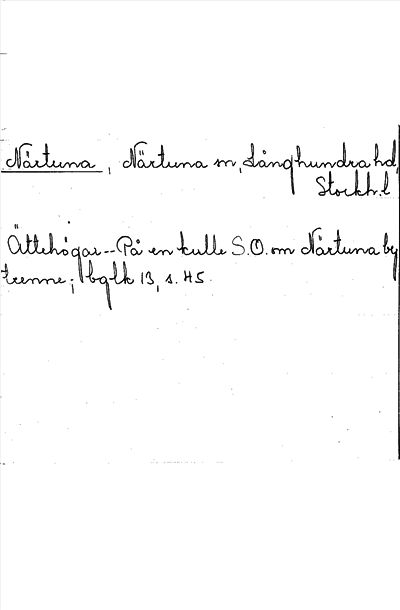 Närtuna, Närtuna sn, Långhundra hd,
Stockh. l
Ättehögar -- På en kulle S.O. om Närtuna by
trenne; bglk 13, s. 45.